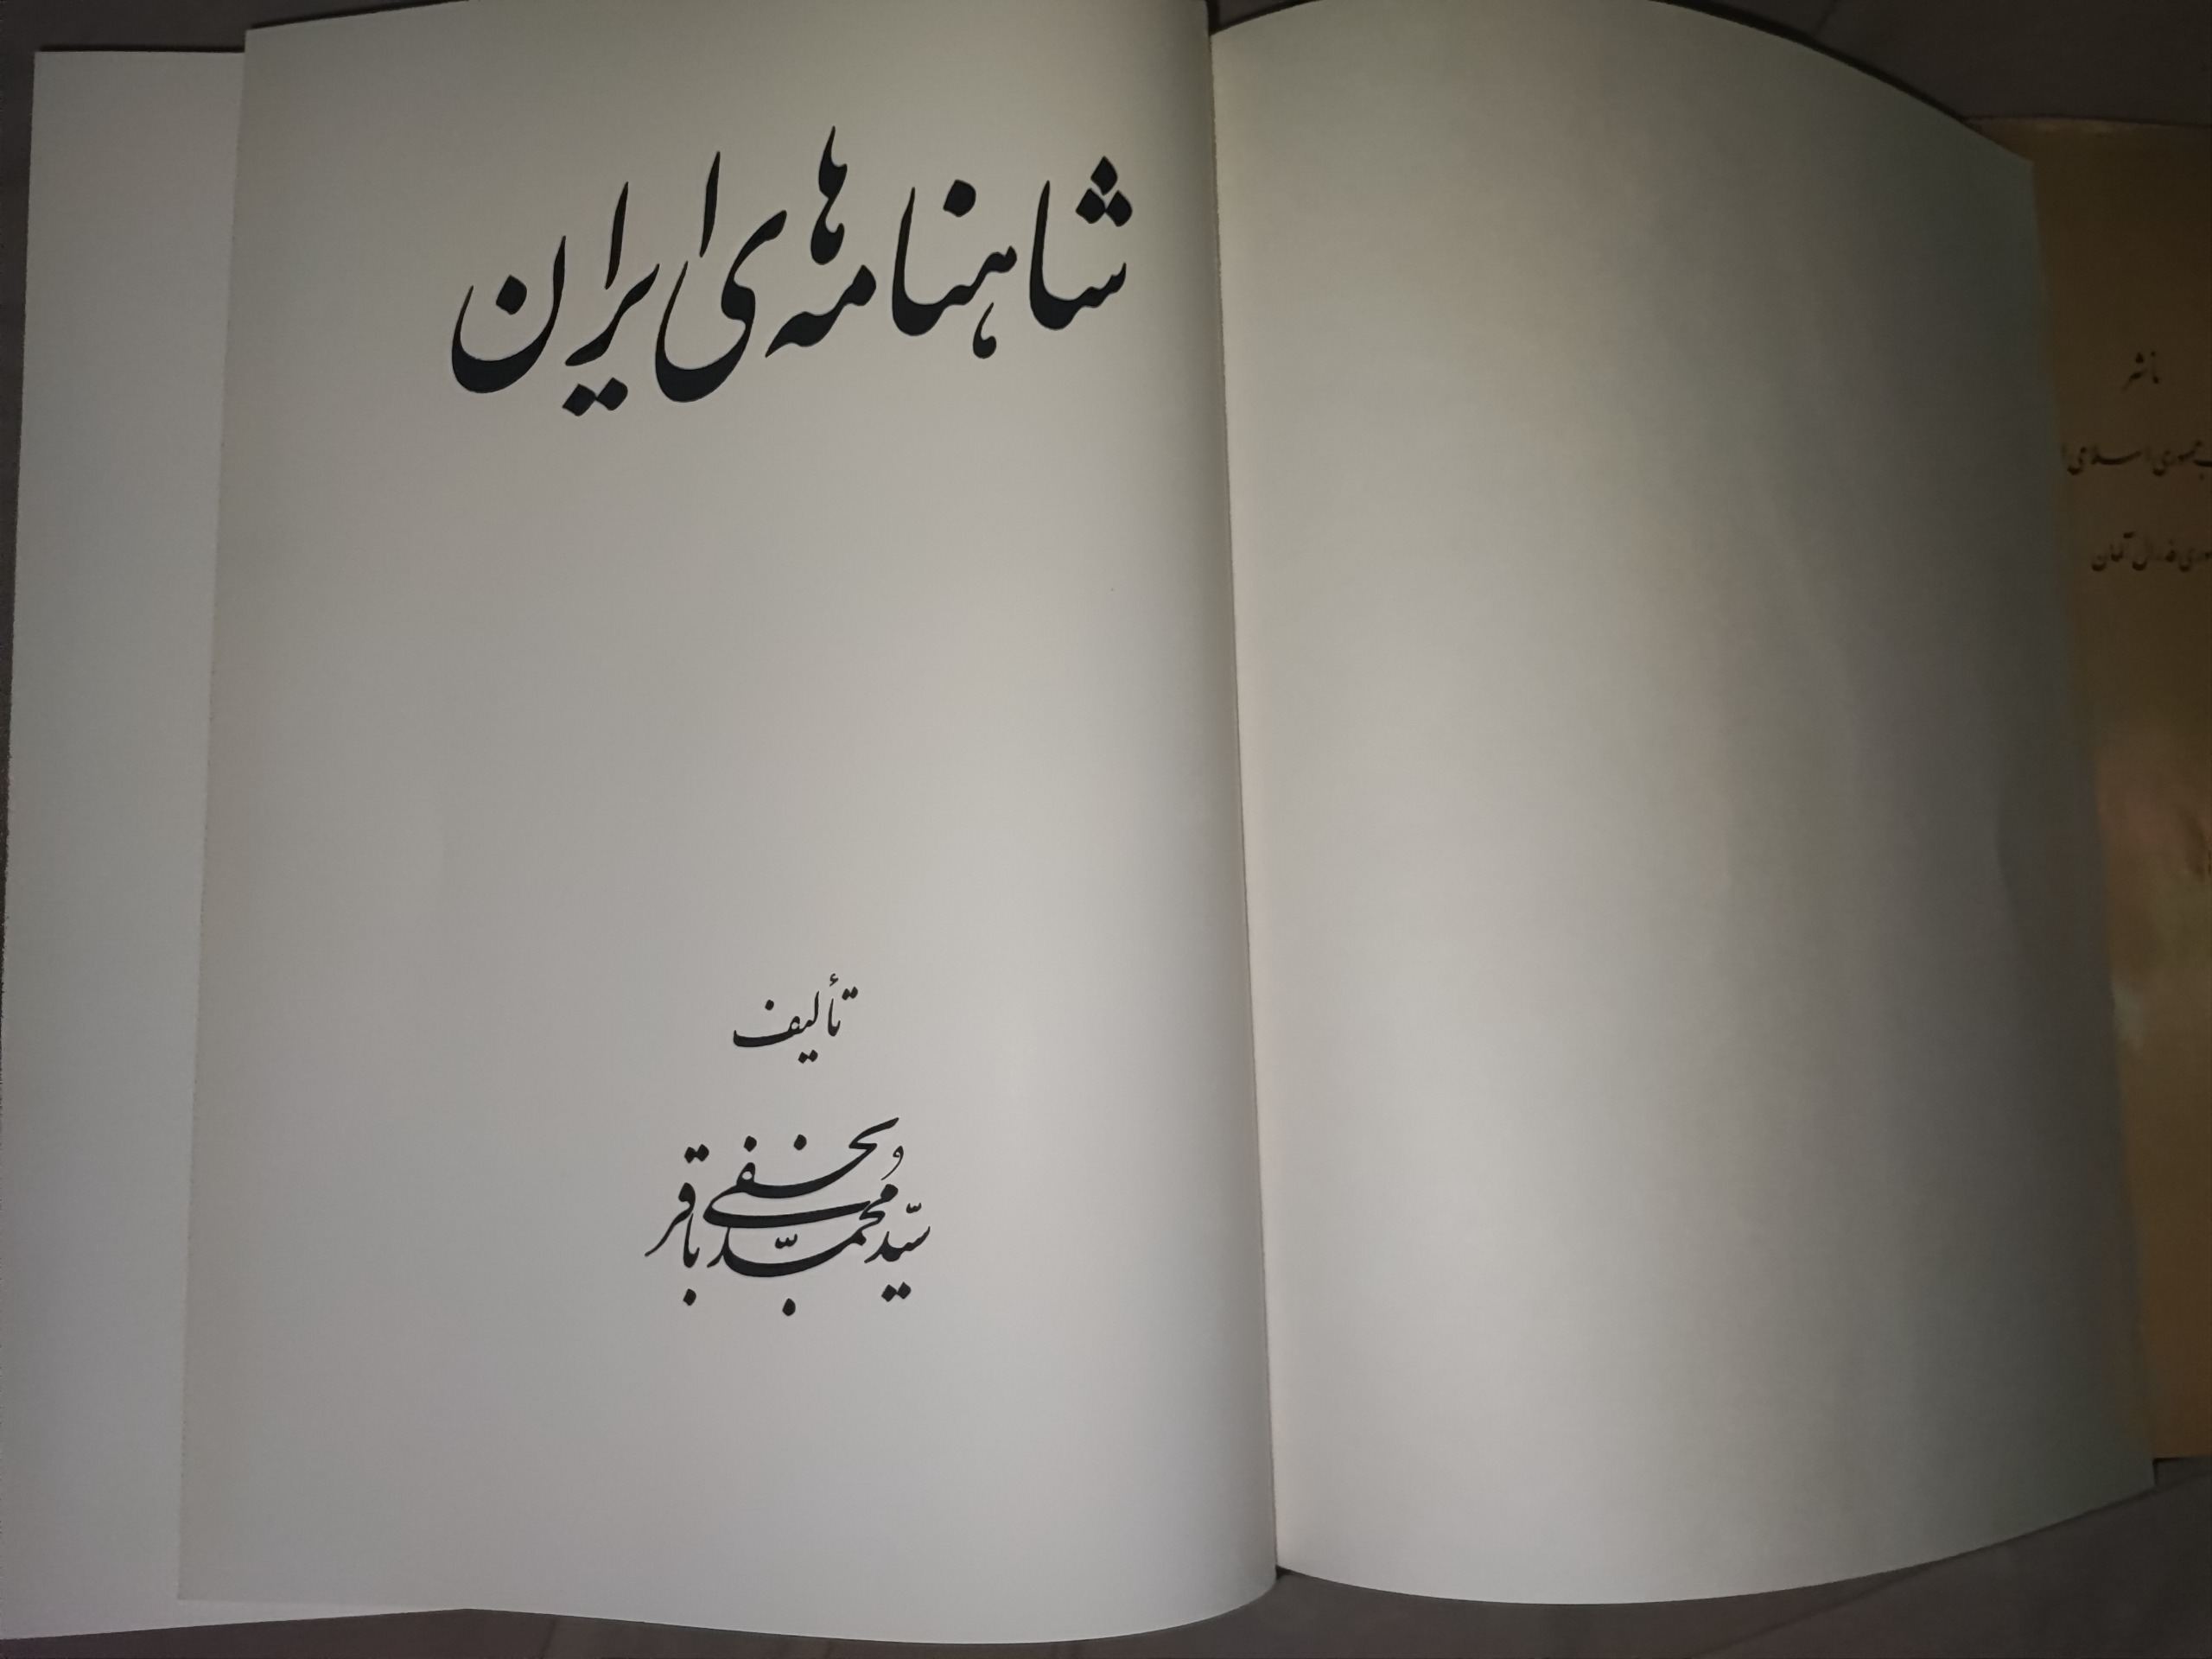 شاهنامه‌های ایران
تألیف
سیّد محمّد باقر نجفی
ناشر
جمهوری اسلامی
فدرال آلمان